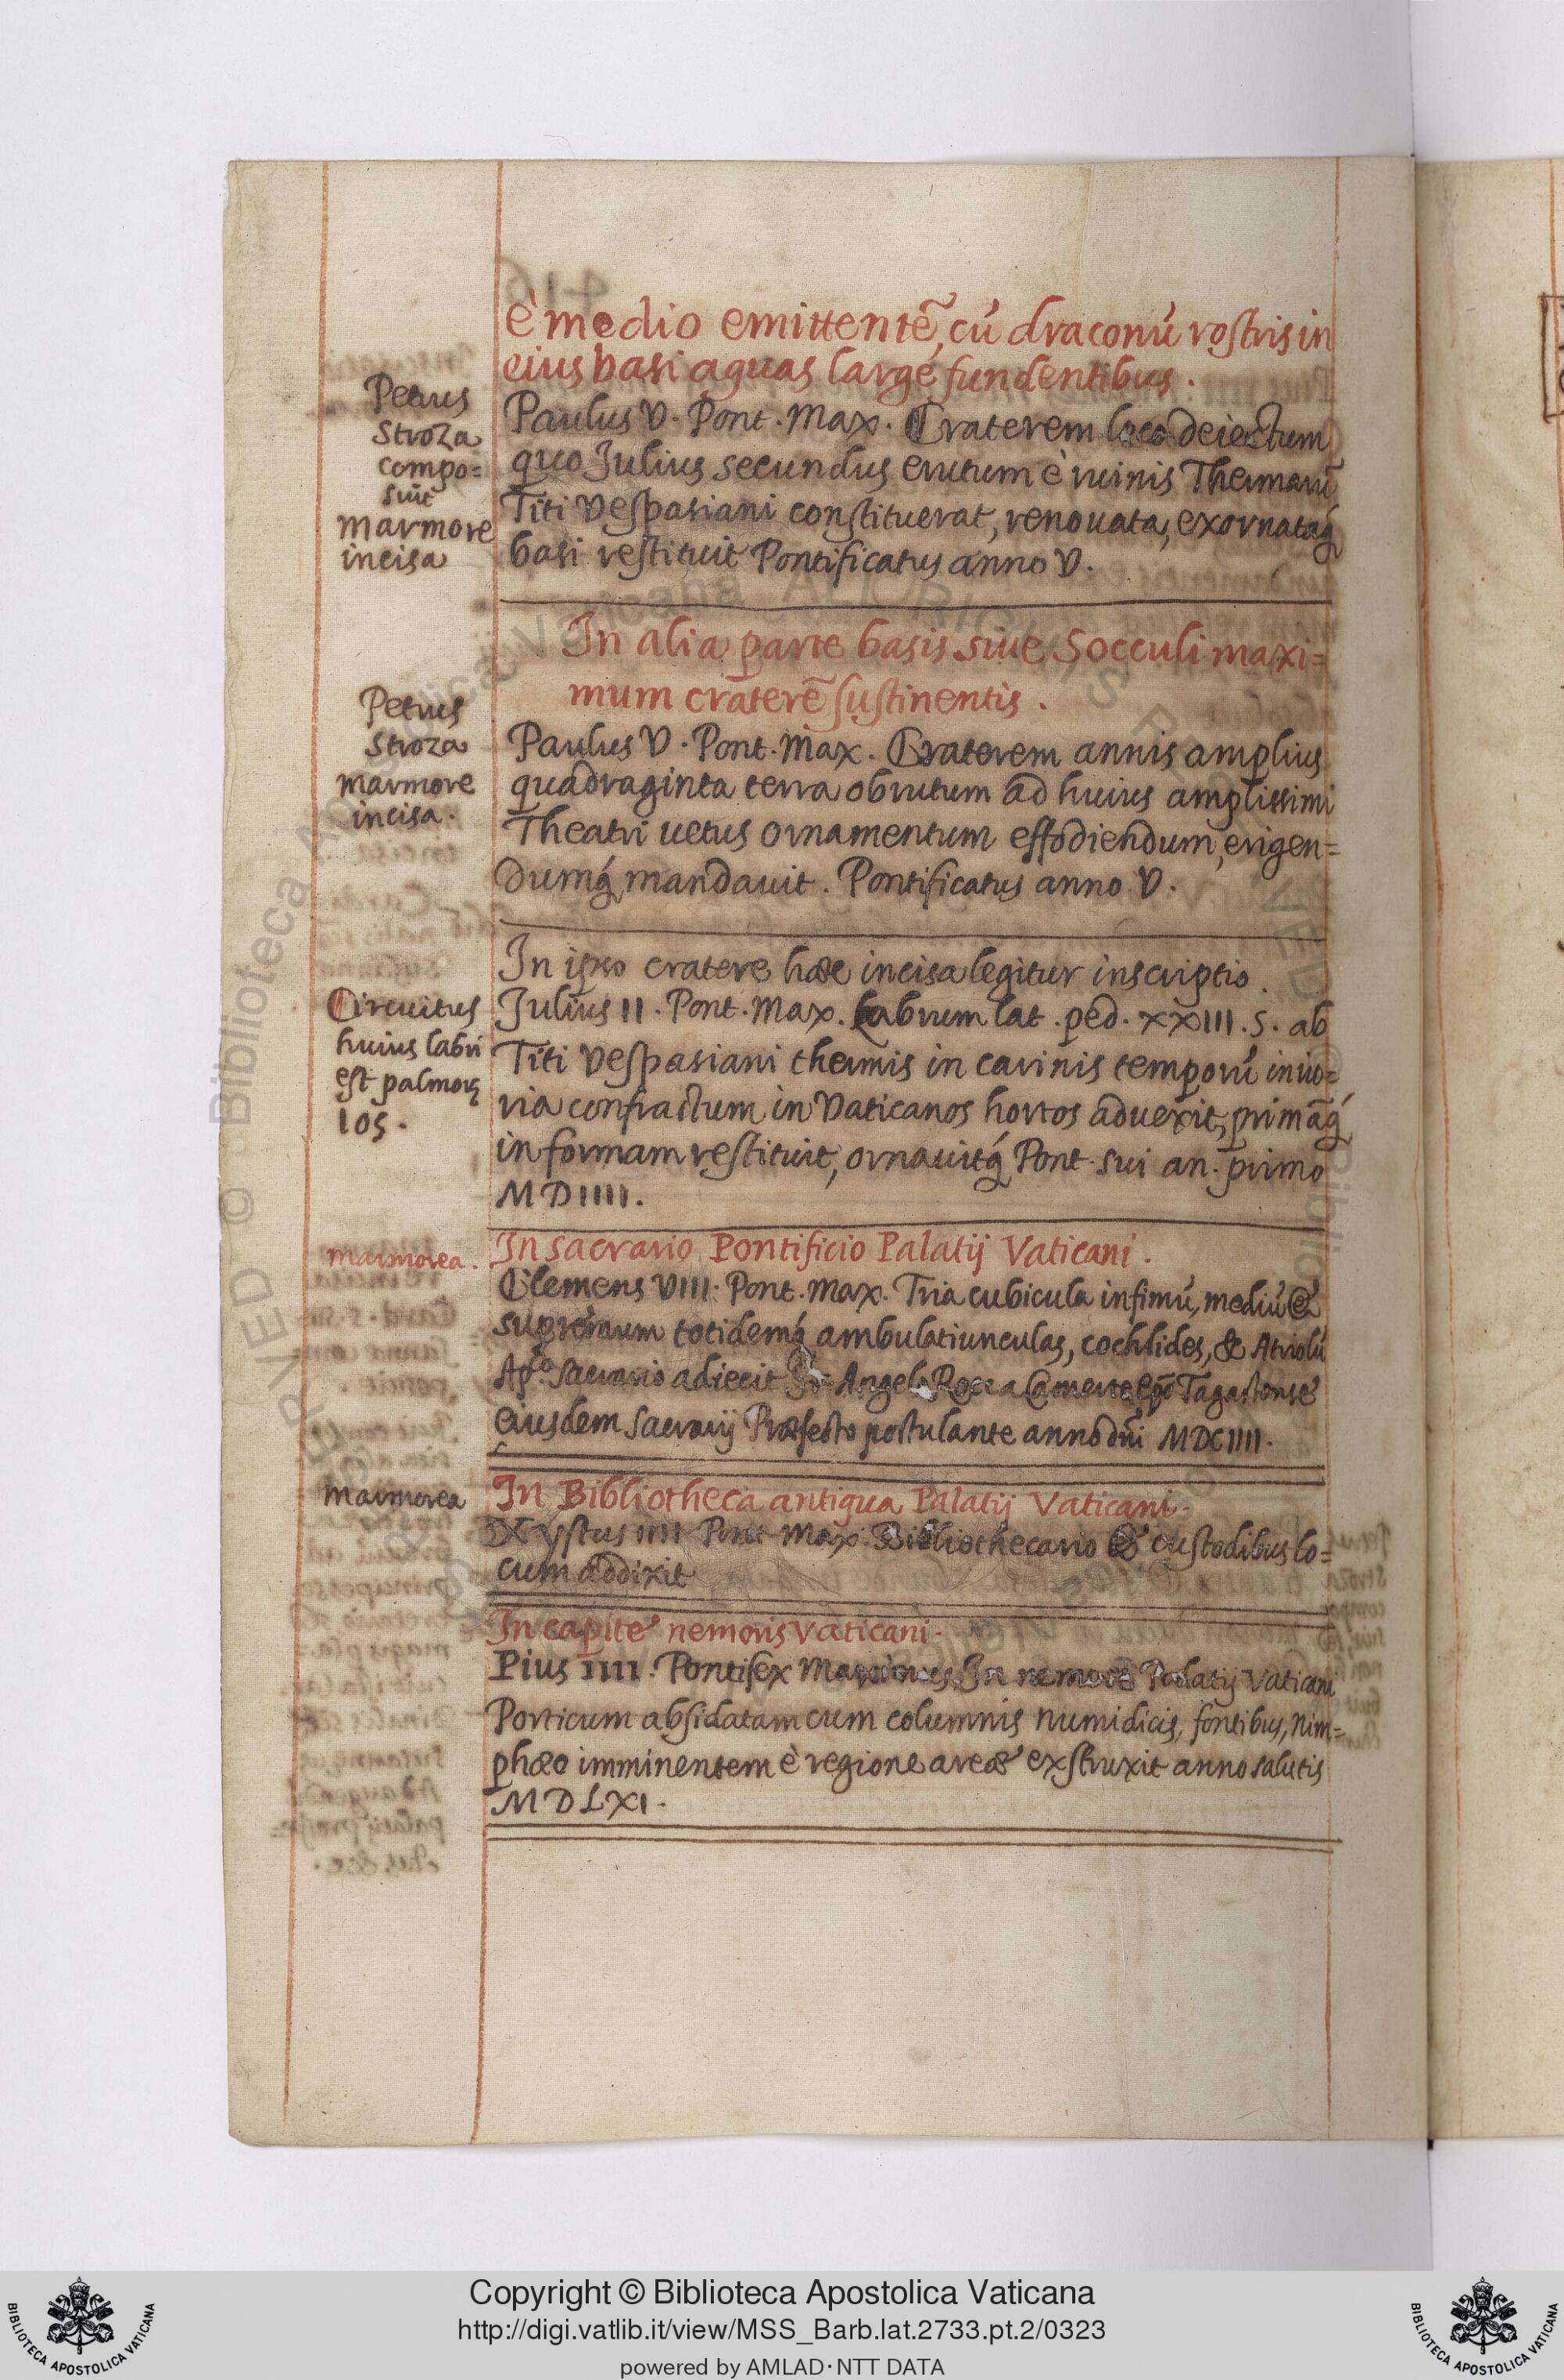 è medio emittentẽ, cú draconú rostris in
eius basi aquas largé fundentibus.
Petrus
Stroza
compo=
suit
marmore
incisa
Paulus V. Pont. Max. Craterem loco deiectum
quo Julius secundus erutum è ruinis Thermarũ
Titi Vespasiani constituerat, renouata, exornataq́
basi restituit Pontificatus anno V.
In alia parte basis siue Socculi maxi=
mum craterẽ sustinentis.
Petrus
Stroza
marmore
incisa.
Paulus V. Pont. Max. Craterem annis amplius
quadraginta terra obrutum ad huius amplissimi
Theatri uetus ornamentum effodiendum, erigen=
dumq́ mandauit. Pontificatus anno V.
In ipso cratere hæc incisa legitur inscriptio.
Circuitus
huius labri
est palmoꝝ
105.
Julius II. Pont. Max. Labrum lat. ped. XXIII. S. ab
Titi Vespasiani thermis in carinis temporú iniu=
ria confractum in Vaticanos hortos aduexit, primãq́
in formam restituit, ornauitq́ Pont. sui an. primo
MDIIII.
marmorea.
In sacrario Pontificio Palatij Vaticani.
Clemens VIII. Pont. Max. Tria cubicula infimú, mediú &
supremum totidemq́ ambulatiunculas, cochlides, & Atriolú
Apᶜᵒ Sacrario adiecit Fr. Angelo Rocca Camerte Ep̃o Tagastense
eiusdem Sacrarij Præfecto postulante anno dñi MDCIIII.
marmorea
In Bibliotheca antiqua Palatij Vaticani.
Xystus IIII Pont Max. Bibliothecario & custodibus lo=
cum addixit
In capite nemoris Vaticani.
Pius IIII. Pontifex Maximus In nemore Palatij Vaticani
Porticum absidatam cum columnis numidicis, fontibus, Nim=
phæo imminentem è regione areæ exstruxit anno salutis
MDLXI.
Copyright © Biblioteca Apostolica Vaticana
http://digi.vatlib.it/view/MSS_Barb.lat.2733.pt.2/0323
powered by AMLAD·NTT DATA
BIBLIOTECA APOSTOLICA VATICANA
BIBLIOTECA APOSTOLICA VATICANA